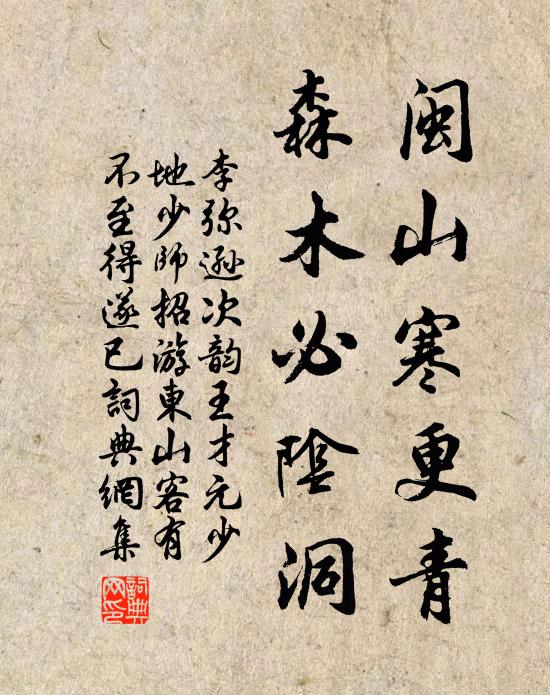 闽山寒更青
森木必陰洞
李弥逊次韵王才元少
地少师招游東山客有
不至得遂已詞典網集
詞典网印